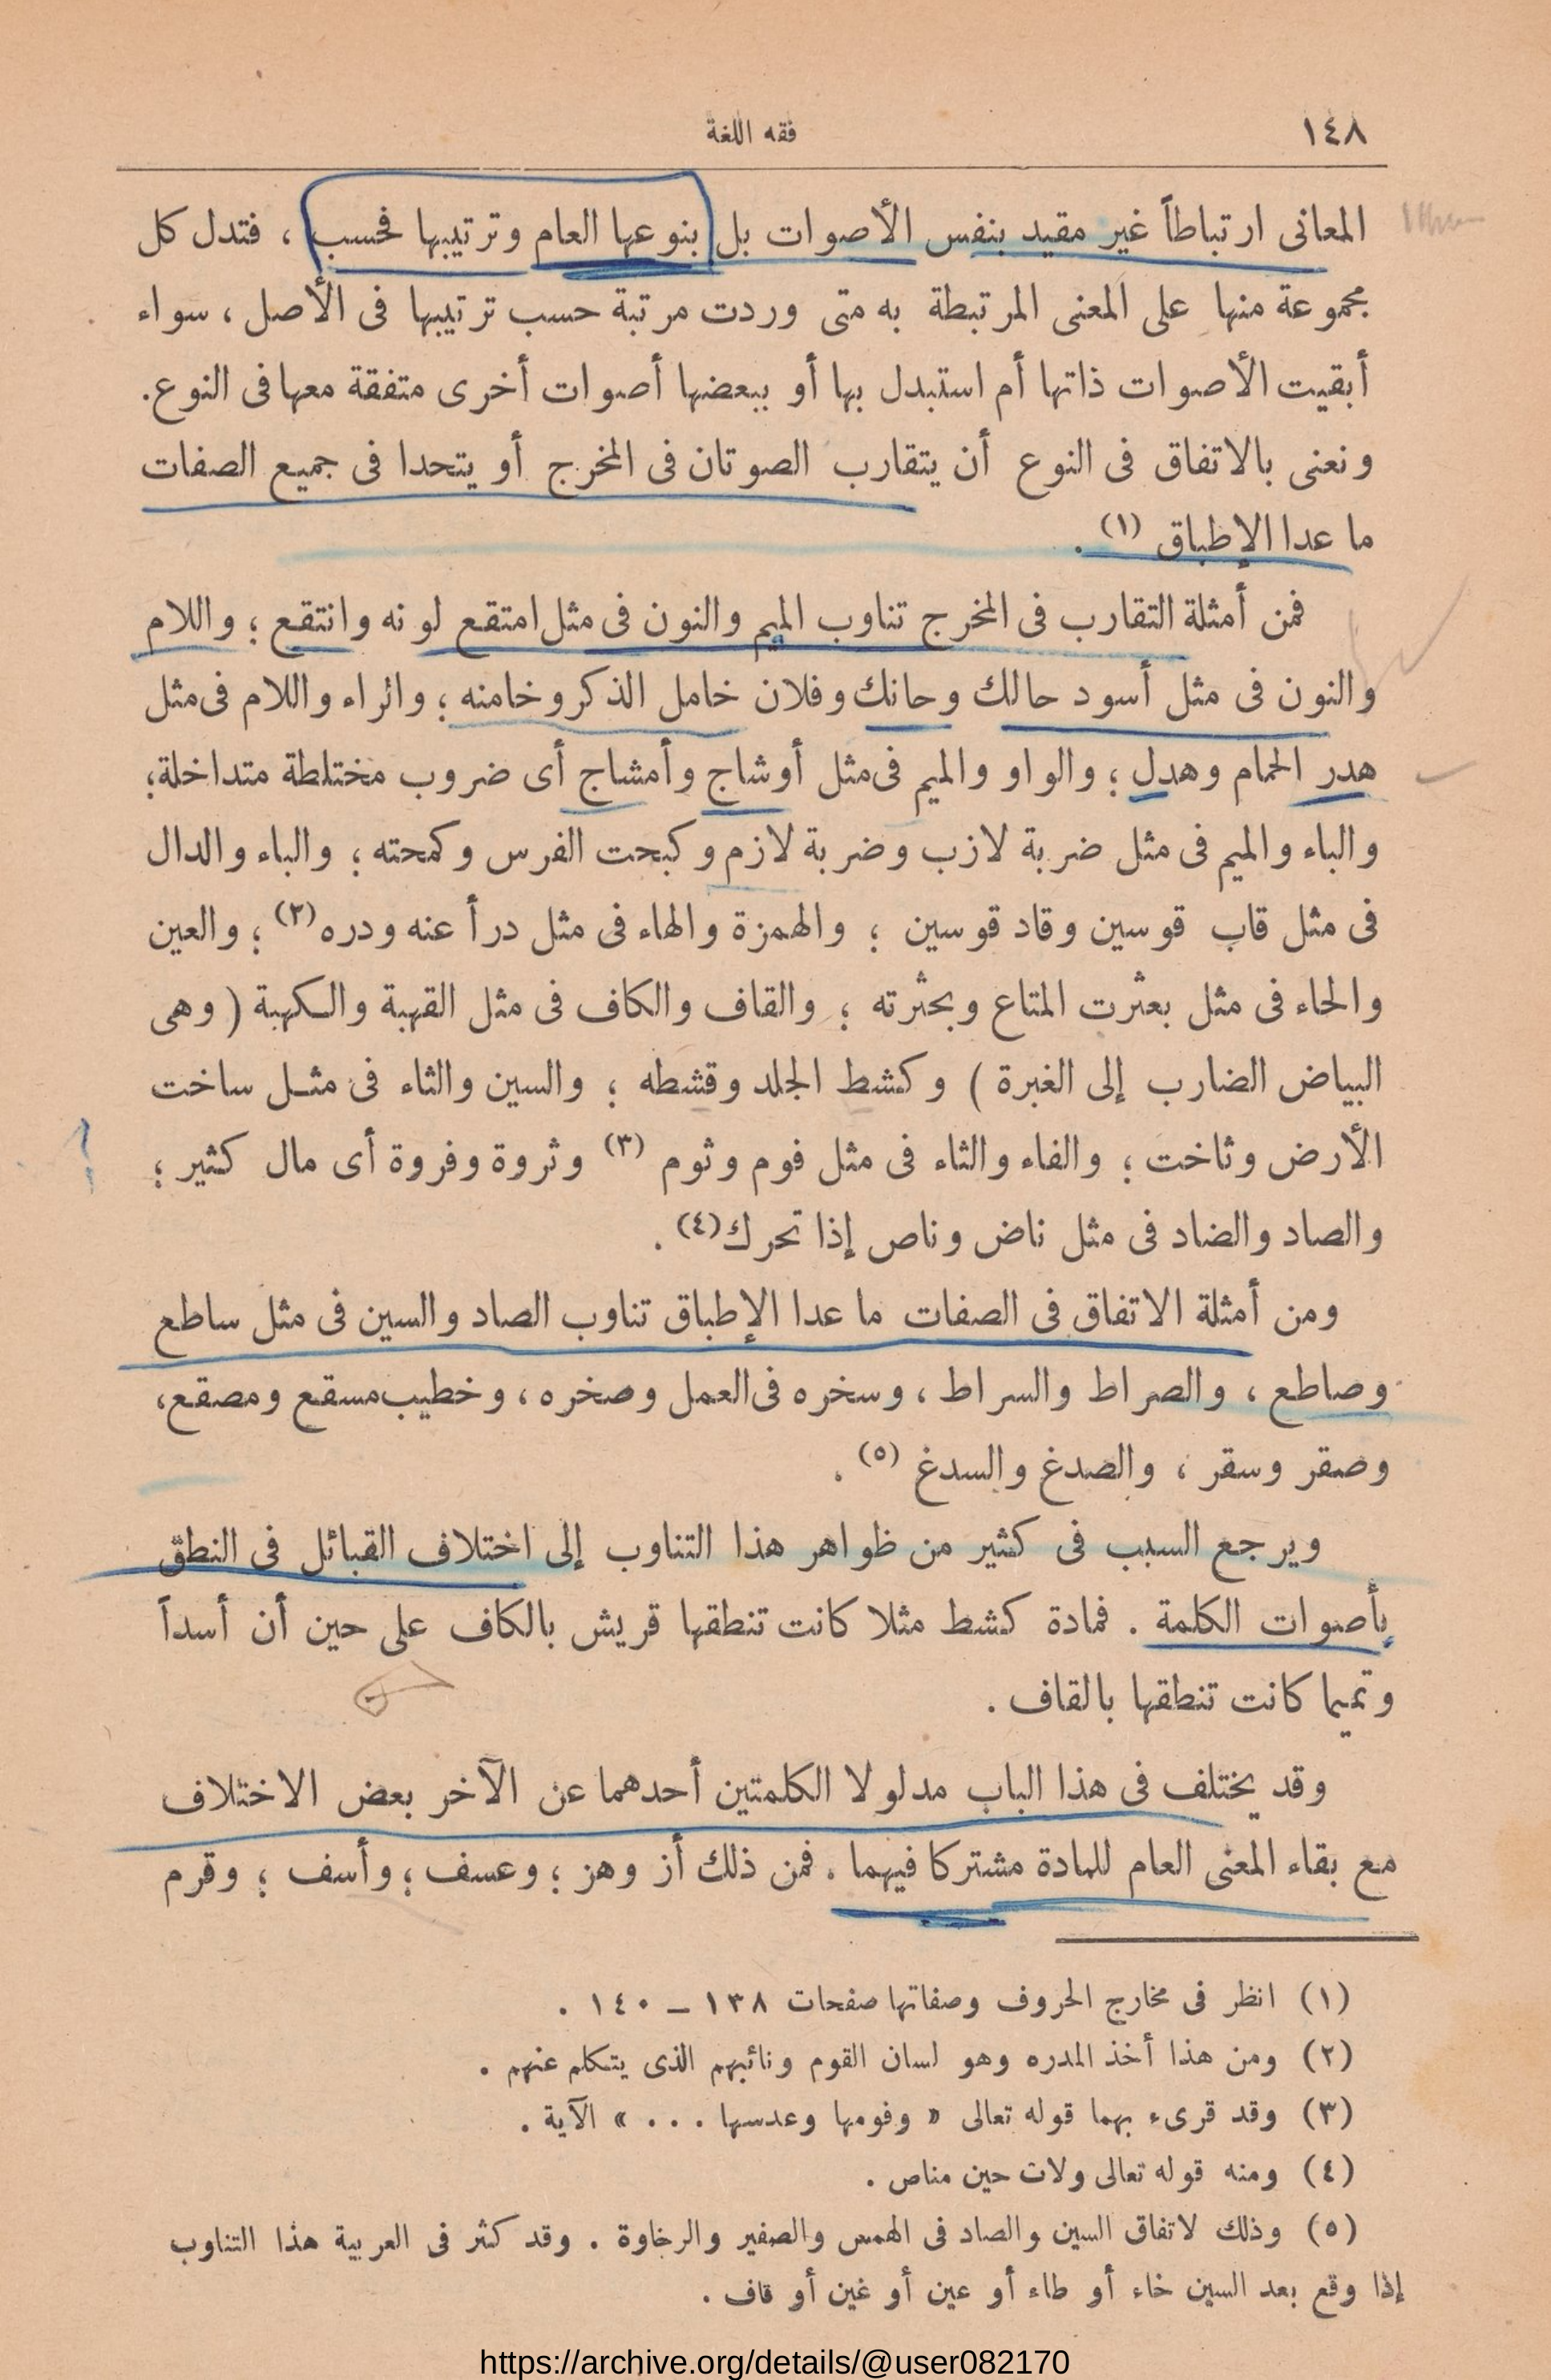 ١٤٨
فقه اللغة
المعانى ارتباطاً غير مقيد بنفس الأصوات بل بنوعها العام وترتيبها فحسب ، فتدل كل
مجموعة منها على المعنى المرتبطة به متى وردت مرتبة حسب ترتيبها فى الأصل ، سواء
أبقيت الأصوات ذاتها أم استبدل بها أو ببعضها أصوات أخرى متفقة معها فى النوع.
ونعنى بالاتفاق فى النوع أن يتقارب الصوتان فى المخرج أو يتحدا فى جميع الصفات
ما عدا الإطباق (١) .
فمن أمثلة التقارب فى المخرج تناوب الميم والنون فى مثل امتقع لونه وانتقع ؛ واللام
والنون فى مثل أسود حالك وحانك وفلان خامل الذكر وخامنه ؛ والراء واللام فى مثل
هدر الحمام وهدل ؛ والواو والميم فى مثل أوشاج وأمشاج أى ضروب مختلطة متداخلة؛
والباء والميم فى مثل ضربة لازب وضربة لازم وكبحت الفرس وكمحته ؛ والباء والدال
فى مثل قاب قوسين وقاد قوسين ؛ والهمزة والهاء فى مثل درأ عنه ودره (٢) ؛ والعين
والحاء فى مثل بعثرت المتاع وبحثرته ؛ والقاف والكاف فى مثل القهبة والكهبة ( وهى
البياض الضارب إلى الغبرة ) وكشط الجلد وقشطه ؛ والسين والثاء فى مثل ساخت
الأرض وثاخت ؛ والفاء والثاء فى مثل فوم وثوم (٣) وثروة وفروة أى مال كثير ؛
والصاد والضاد فى مثل ناض وناص إذا تحرك (٤) .
ومن أمثلة الاتفاق فى الصفات ما عدا الإطباق تناوب الصاد والسين فى مثل ساطع
وصاطع ، والصراط والسراط ، وسخره فى العمل وصخره ، وخطيب مسقع ومصقع،
وصقر وسقر ، والصدغ والسدغ (٥) .
ويرجع السبب فى كثير من ظواهر هذا التناوب إلى اختلاف القبائل فى النطق
بأصوات الكلمة . فمادة كشط مثلا كانت تنطقها قريش بالكاف على حين أن أسداً
وتميما كانت تنطقها بالقاف .
وقد يختلف فى هذا الباب مدلولا الكلمتين أحدهما عن الآخر بعض الاختلاف
مع بقاء المعنى العام للمادة مشتركا فيهما . فمن ذلك أز وهز ؛ وعسف ؛ وأسف ؛ وقرم
(١) انظر فى مخارج الحروف وصفاتها صفحات ١٣٨ – ١٤٠ .
(٢) ومن هذا أخذ المدره وهو لسان القوم ونائبهم الذى يتكلم عنهم .
(٣) وقد قرىء بهما قوله تعالى « وفومها وعدسها . . . » الآية .
(٤) ومنه قوله تعالى ولات حين مناص .
(٥) وذلك لاتفاق السين والصاد فى الهمس والصفير والرخاوة . وقد كثر فى العربية هذا التناوب
إذا وقع بعد السين خاء أو طاء أو عين أو غين أو قاف .
https://archive.org/details/@user082170